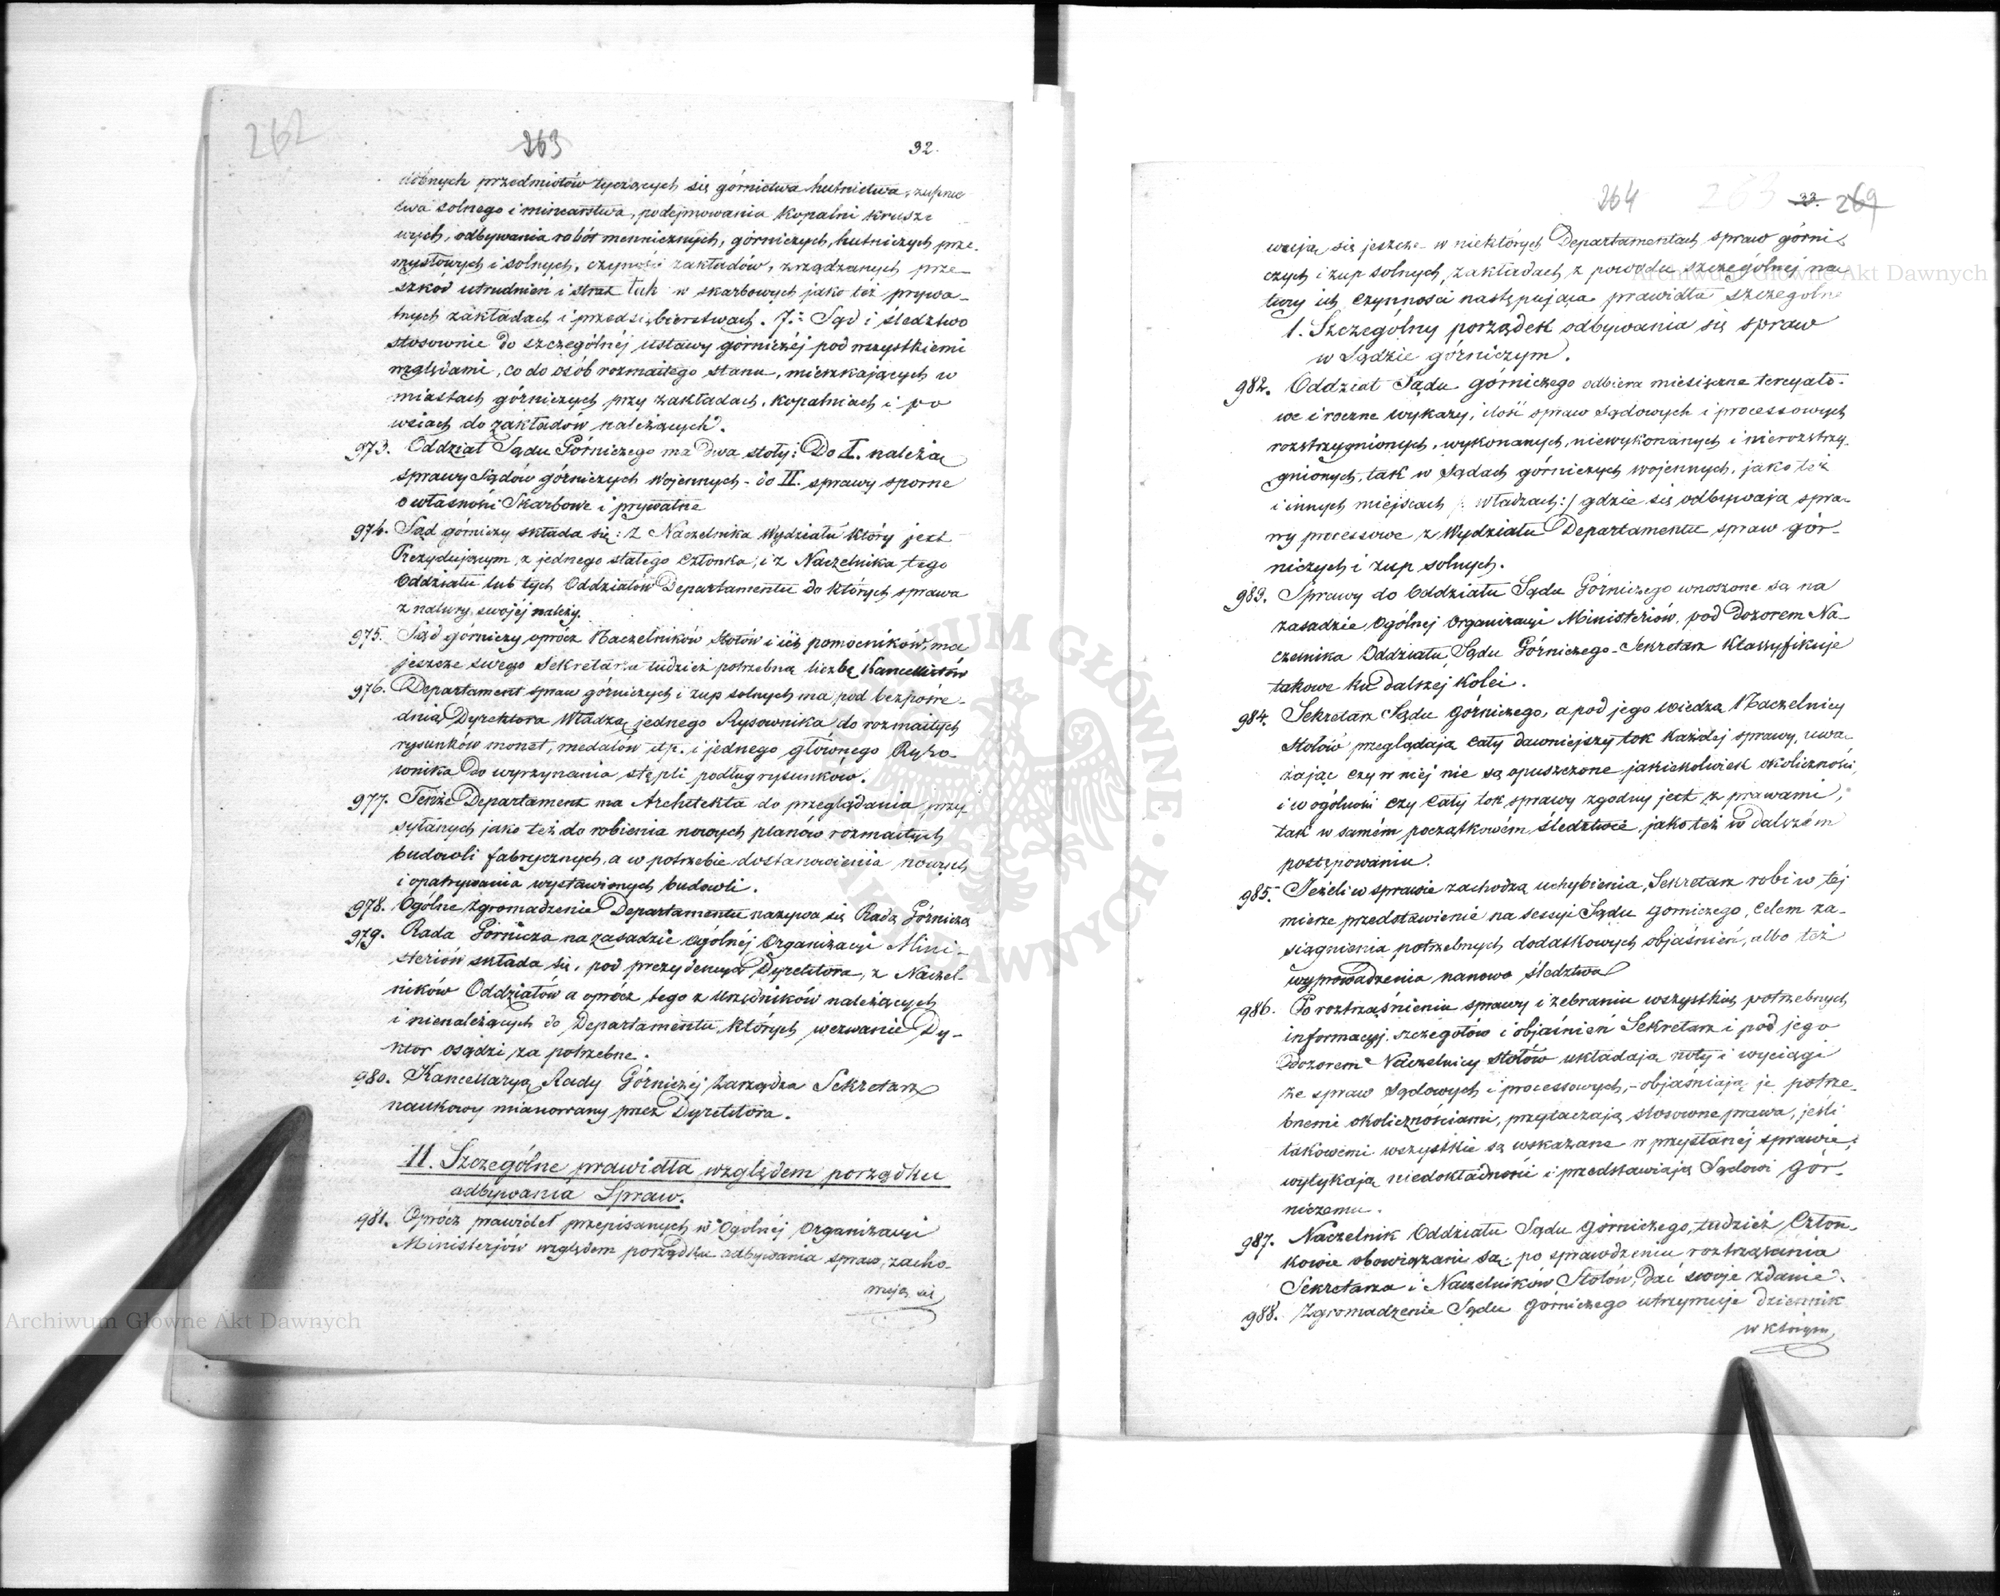 262
263
32.
dobnych przedmiotów tyczących się górnictwa hutnictwa, żupnic
twa solnego i mincarstwa, podejmowania kopalni krusz
wych, odbywania robót mennicznych, górniczych, hutniczych prze-
mysłowych i solnych, czynności zakładów, zrządzanych prze-
szkód utrudnień i strat tak w skarbowych jako też prywa-
tnych zakładach i przedsiębierstwach. 7.: Sąd i śledztwo
stosownie do szczególnéj ustawy górniczéj pod wszystkiemi
względami, co do osób rozmaitego stanu, mieszkających w
miastach górniczych przy zakładach, kopalniach i po
wsiach do zakładów należących.
973. Oddział Sądu Górniczego ma dwa stoły: Do I. należą
sprawy Sądów górniczych wojennych - do II. sprawy sporne
o własności Skarbowe i prywatne
974. Sąd górniczy składa się: z Naczelnika Wydziału który jest
Prezydującym, z jednego stałego Członka, i z Naczelnika tego
Oddziału lub tych Oddziałów Departamentu do których sprawa
z natury swojéj należy.
975. Sąd górniczy oprócz Naczelników Stołów i ich pomocników, ma
jeszcze swego Sekretarza tudzież potrzebną liczbę Kancellistów
976. Departament spraw górniczych i żup solnych ma pod bezpośre-
dnią Dyrektora Władzą jednego Rysownika do rozmaitych
rysunków monet, medalów itp. i jednego głównego Ryto
wnika do wyrzynania stępli podług rysunków.
977. Tenże Departament ma Architekta do przeglądania przy
syłanych jako też do robienia nowych planów rozmaitych
budowli fabrycznych, a w potrzebie dostanowienia nowych
i opatrywania wystawionych budowli.
978. Ogólne zgromadzenie Departamentu nazywa się Radą Górniczą
979. Rada Górnicza na zasadzie ogólnéj Organizacyi Mini-
steriów składa się, pod prezydencyą Dyrektora, z Naczel-
ników Oddziałów a oprócz tego z Urzędników należących
i nienależących do Departamentu, których wezwanie Dy-
ktor osądzi za potrzebne.
980. Kancellaryą Rady Górniczéj zarządza Sekretarz
naukowy mianowany przez Dyrektora.
II. Szczególne prawidła względem porządku
odbywania Spraw.
981. Oprócz prawideł przepisanych w Ogólnéj Organizacyi
Ministerjów względem porządku odbywania spraw, zacho-
wują się
264
263
33. 269
wują się jeszcze w niektórych Departamentach spraw górni
czych i żup solnych, zakładach, z powodu szczególnéj na
tury ich czynności następujące prawidła szczególne
1. Szczególny porządek odbywania się spraw
w Sądzie górniczym.
982. Oddział Sądu górniczego odbiera miesięczne tercyało-
we i roczne wykazy, ilość spraw sądowych i processowych
rozstrzygnionych, wykonanych, niewykonanych i nierozstrzy-
gnionych, tak w Sądach górniczych wojennych, jako też
i innych miejscach /: władzach :/ gdzie się odbywają spra-
wy processowe z Wydziału Departamentu spraw gór-
niczych i żup solnych.
983. Sprawy do Oddziału Sądu Górniczego wnoszone są na
zasadzie Ogólnéj Organizacyi Ministeriów, pod Dozorem Na-
czelnika Oddziału Sądu Górniczego - Sekretarz klassyfikuje
takowe ku dalszej kolei.
984. Sekretarz Sądu Górniczego, a pod jego wiedzą Naczelnicy
Stołów przeglądają cały dawniejszy tok każdej sprawy, uwa-
żając czy w niej nie są opuszczone jakiekolwiek okoliczności,
i w ogólności czy cały tok sprawy zgodny jest z prawami,
tak w samém początkowém śledztwie, jako też w dalszém
postępowaniu.
985. Jeżeli w sprawie zachodzą uchybienia, Sekretarz robi w tej
mierze przedstawienie na sessyi Sądu Górniczego, celem za-
siągnienia potrzebnych dodatkowych objaśnień, albo też
wyprowadzenia nanowo śledztwa
986. Po roztrząśnieniu sprawy i zebraniu wszystkich potrzebnych
informacyj, szczegółów i objaśnień Sekretarz i pod jego
dozorem Naczelnicy stołów układają noty i wyciągi
ze spraw sądowych i processowych, - objaśniają je potrze-
bnemi okolicznościami, przytaczają stosowne prawa, jeśli
takowemi wszystkie są wskazane w przysłanéj sprawie,
wytykają niedokładności i przedstawiają Sądowi Gór-
niczemu.
987. Naczelnik Oddziału Sądu Górniczego, tudzież Człon-
kowie obowiązani są po sprawdzeniu roztrząśnia
Sekretarza i Naczelników Stołów, dać swoje zdanie.
988. Zgromadzenie Sądu Górniczego utrzymuje dziennik
w którym
Archiwum Główne Akt Dawnych
Archiwum Główne Akt Dawnych
ARCHIWUM GŁÓWNE • AKT DAWNYCH •